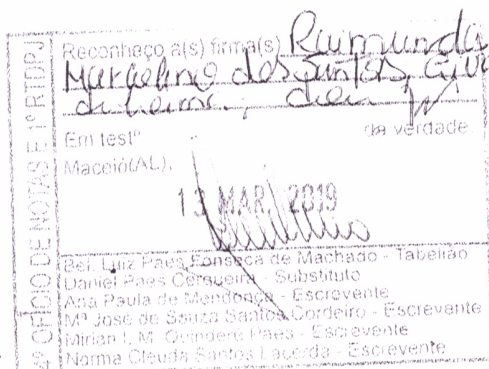 Reconheço a(s) firma(s) Raimunda
Marcelino dos Santos,
Em testº da verdade.
Maceió(AL),
13 MAR 2019
Bel. Luiz Paes Fonseca de Machado - Tabelião
Daniel Paes Cerqueira - Substituto
Ana Paula de Mendonça - Escrevente
Mª José de Souza Santos Cordeiro - Escrevente
Mirian L. M. Quinderé Paes - Escrevente
Norma Cleuda Santos Lacerda - Escrevente
4º OFÍCIO DE NOTAS E 1º RTDPJ